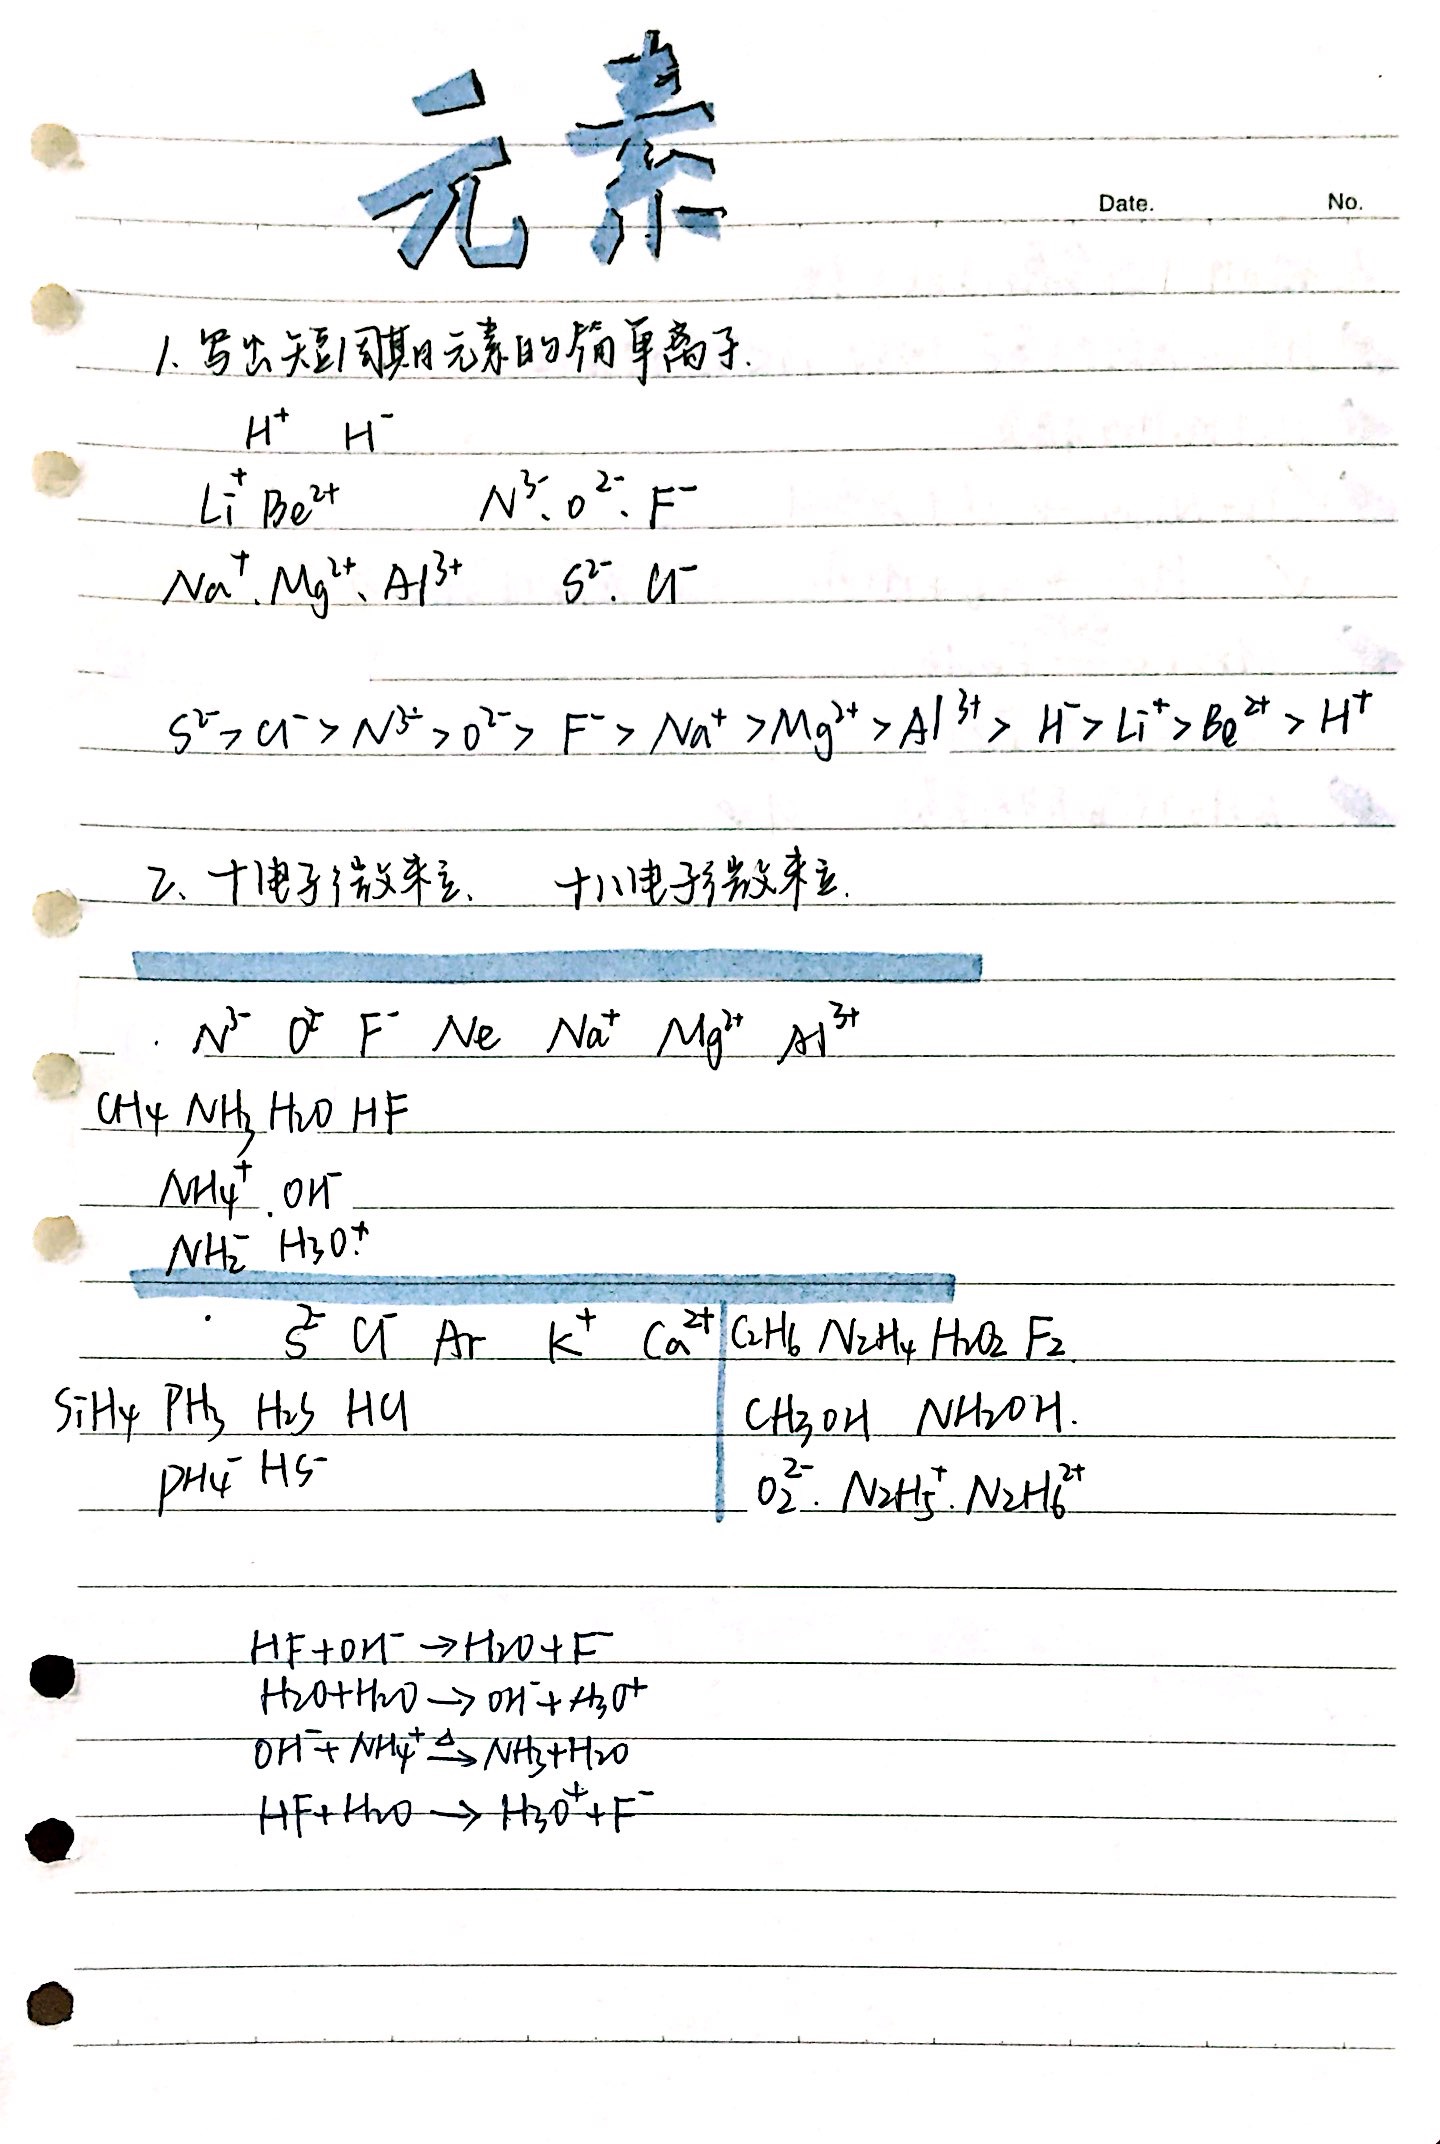 元素
Date. No.
1. 写出短周期元素的简单离子.
H⁺ H⁻
Li⁺ Be²⁺ N³⁻、O²⁻、F⁻
Na⁺、Mg²⁺、Al³⁺ S²⁻、Cl⁻
S²⁻ > Cl⁻ > N³⁻ > O²⁻ > F⁻ > Na⁺ > Mg²⁺ > Al³⁺ > H⁻ > Li⁺ > Be²⁺ > H⁺
2、十电子微粒、 十八电子微粒.
N³⁻ O²⁻ F⁻ Ne Na⁺ Mg²⁺ Al³⁺
CH₄ NH₃ H₂O HF
NH₄⁺、OH⁻
NH₂⁻ H₃O⁺
S²⁻ Cl⁻ Ar K⁺ Ca²⁺ C₂H₆ N₂H₄ H₂O₂ F₂
SiH₄ PH₃ H₂S HCl CH₃OH NH₂OH.
PH₄⁻ HS⁻ O₂²⁻. N₂H₅⁺. N₂H₆²⁺
HF+OH⁻ → H₂O+F⁻
H₂O+H₂O → OH⁻+H₃O⁺
OH⁻+NH₄⁺ ≜→ NH₃+H₂O
HF+H₂O → H₃O⁺+F⁻